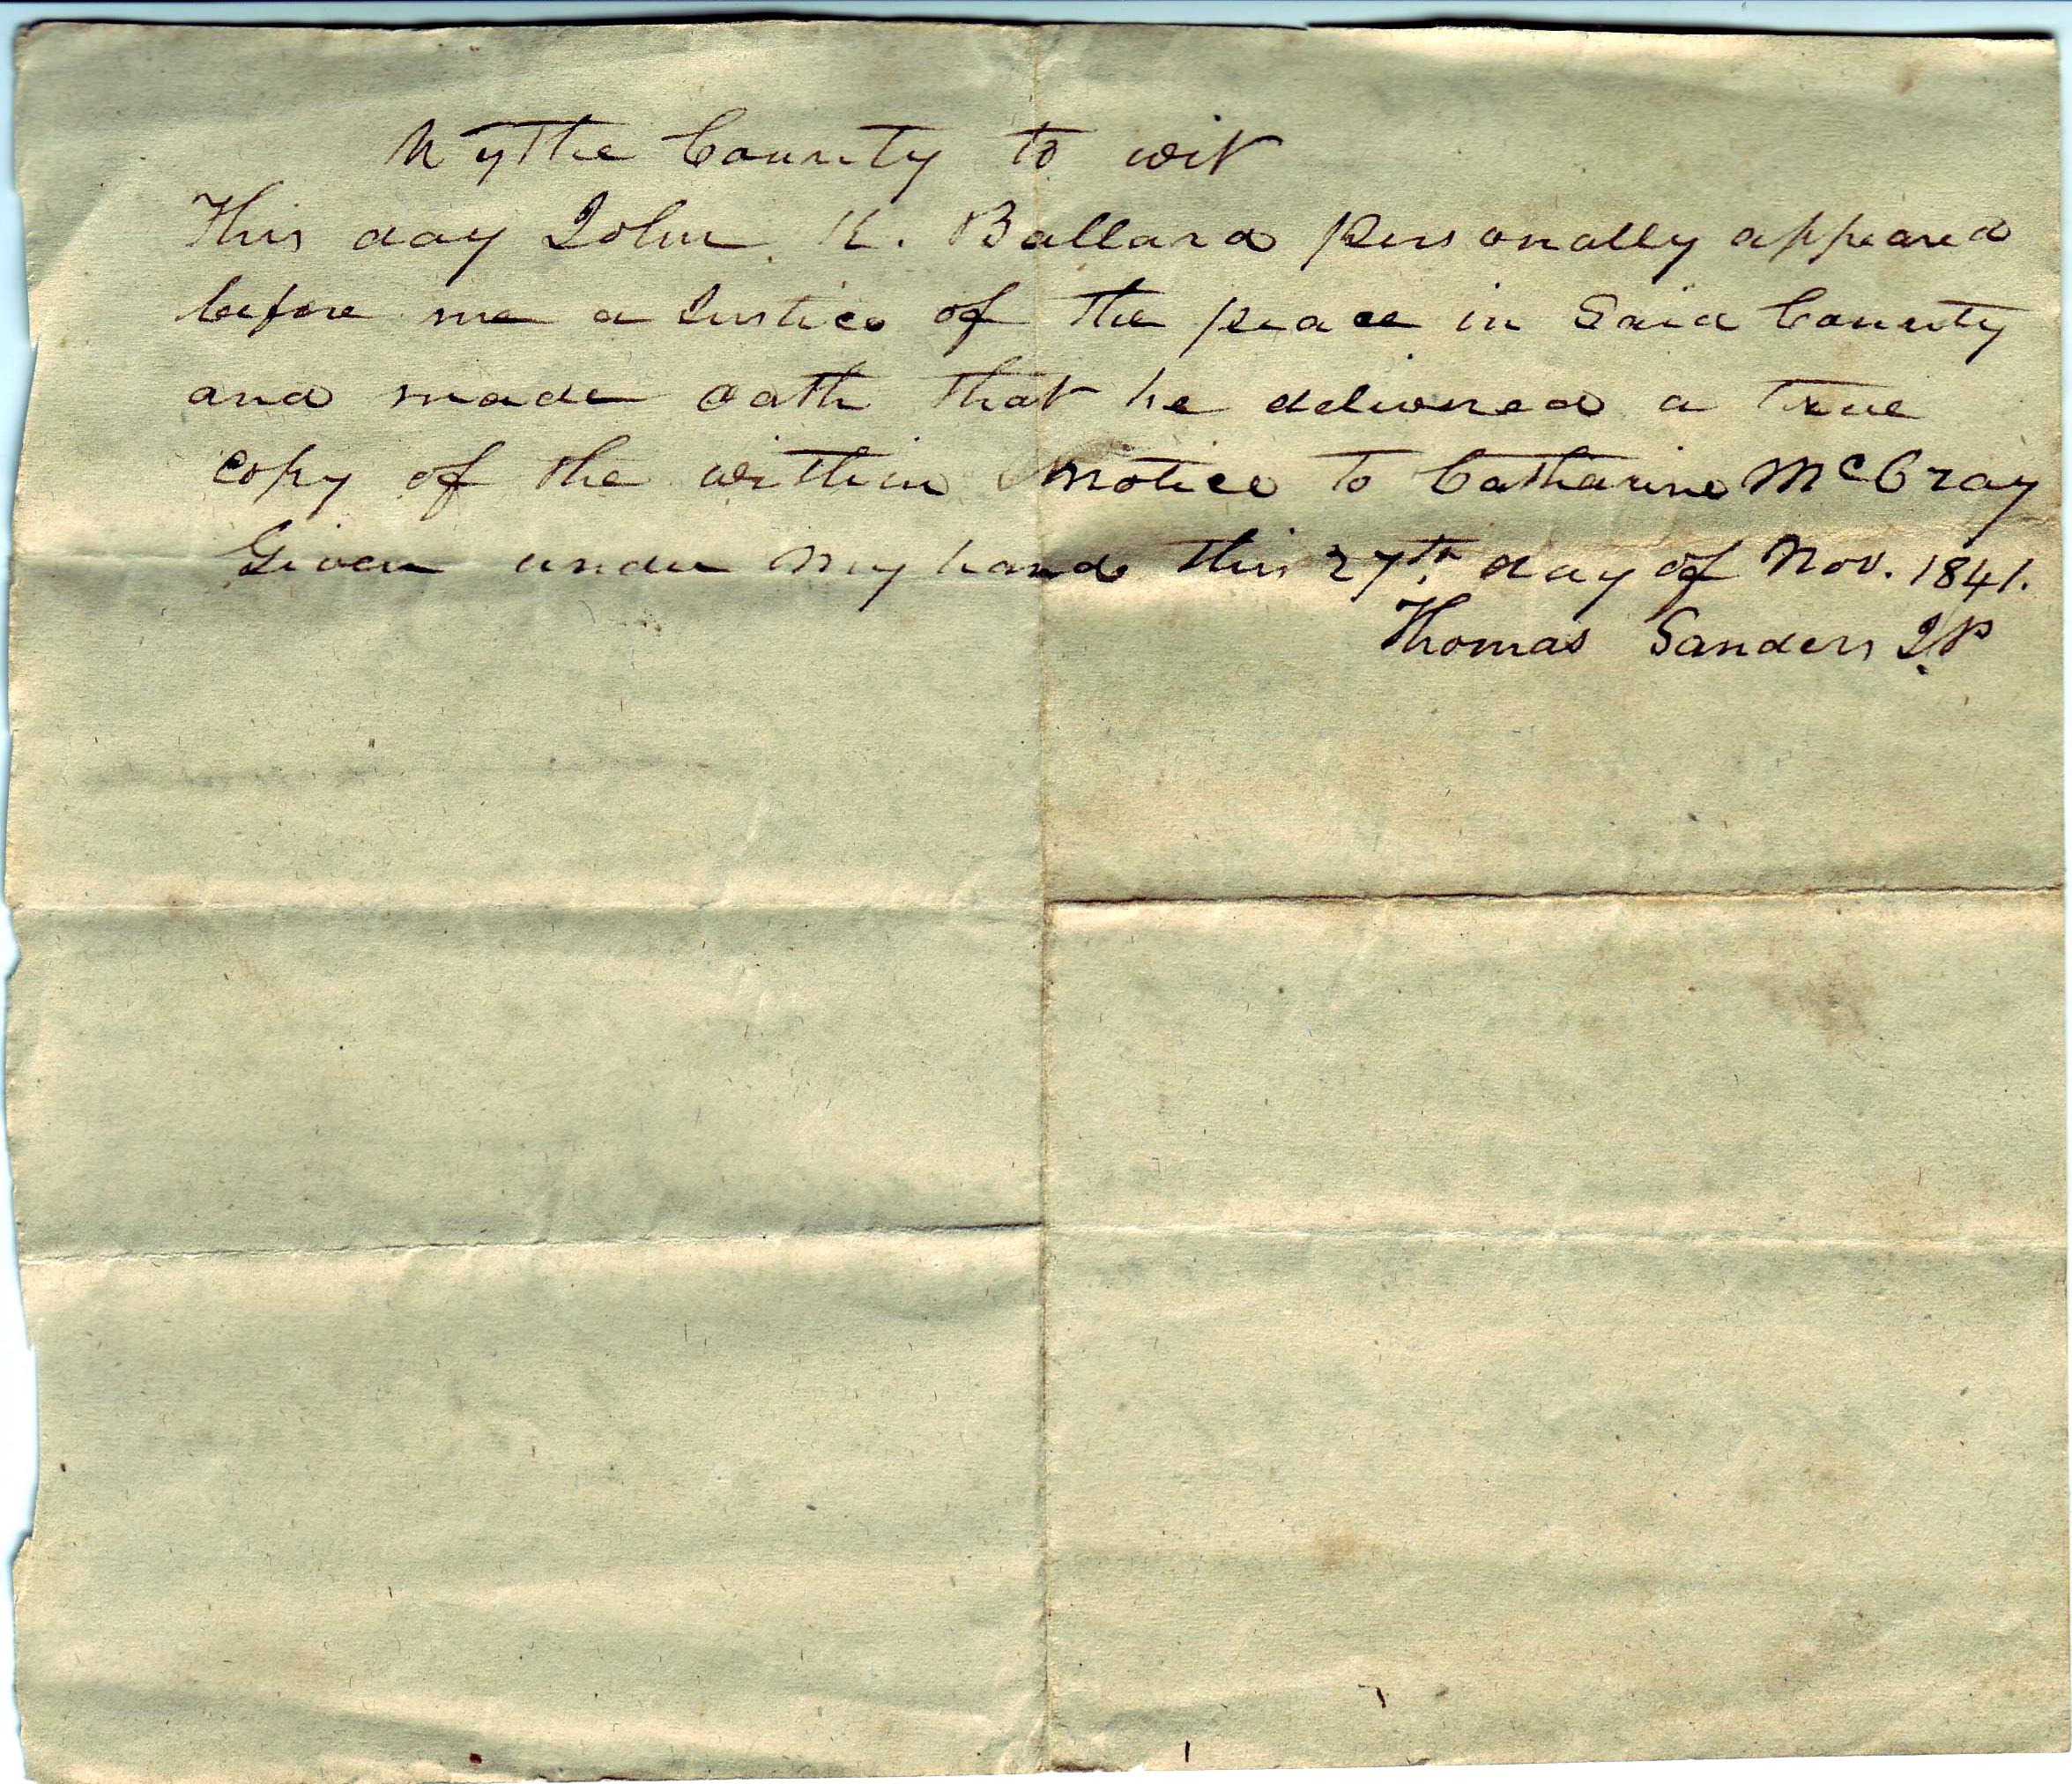 Wythe County to wit
This day John K. Ballard personally appeared
before me a Justice of the peace in Said County
and made oath that he delivered a true
copy of the within notice to Catharine McCray
Given under my hand this 27th day of Nov. 1841.
Thomas Sanders JP